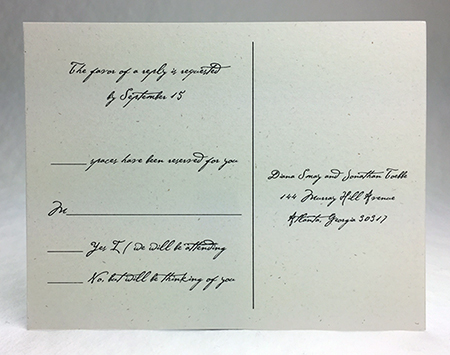 The favor of a reply is requested
by September 15
_____ spaces have been reserved for you
M____________________
_____ Yes I / we will be attending
_____ No, but will be thinking of you
Diana Smay and Jonathan
144 Murray Hill Avenue
Atlanta, Georgia 30317